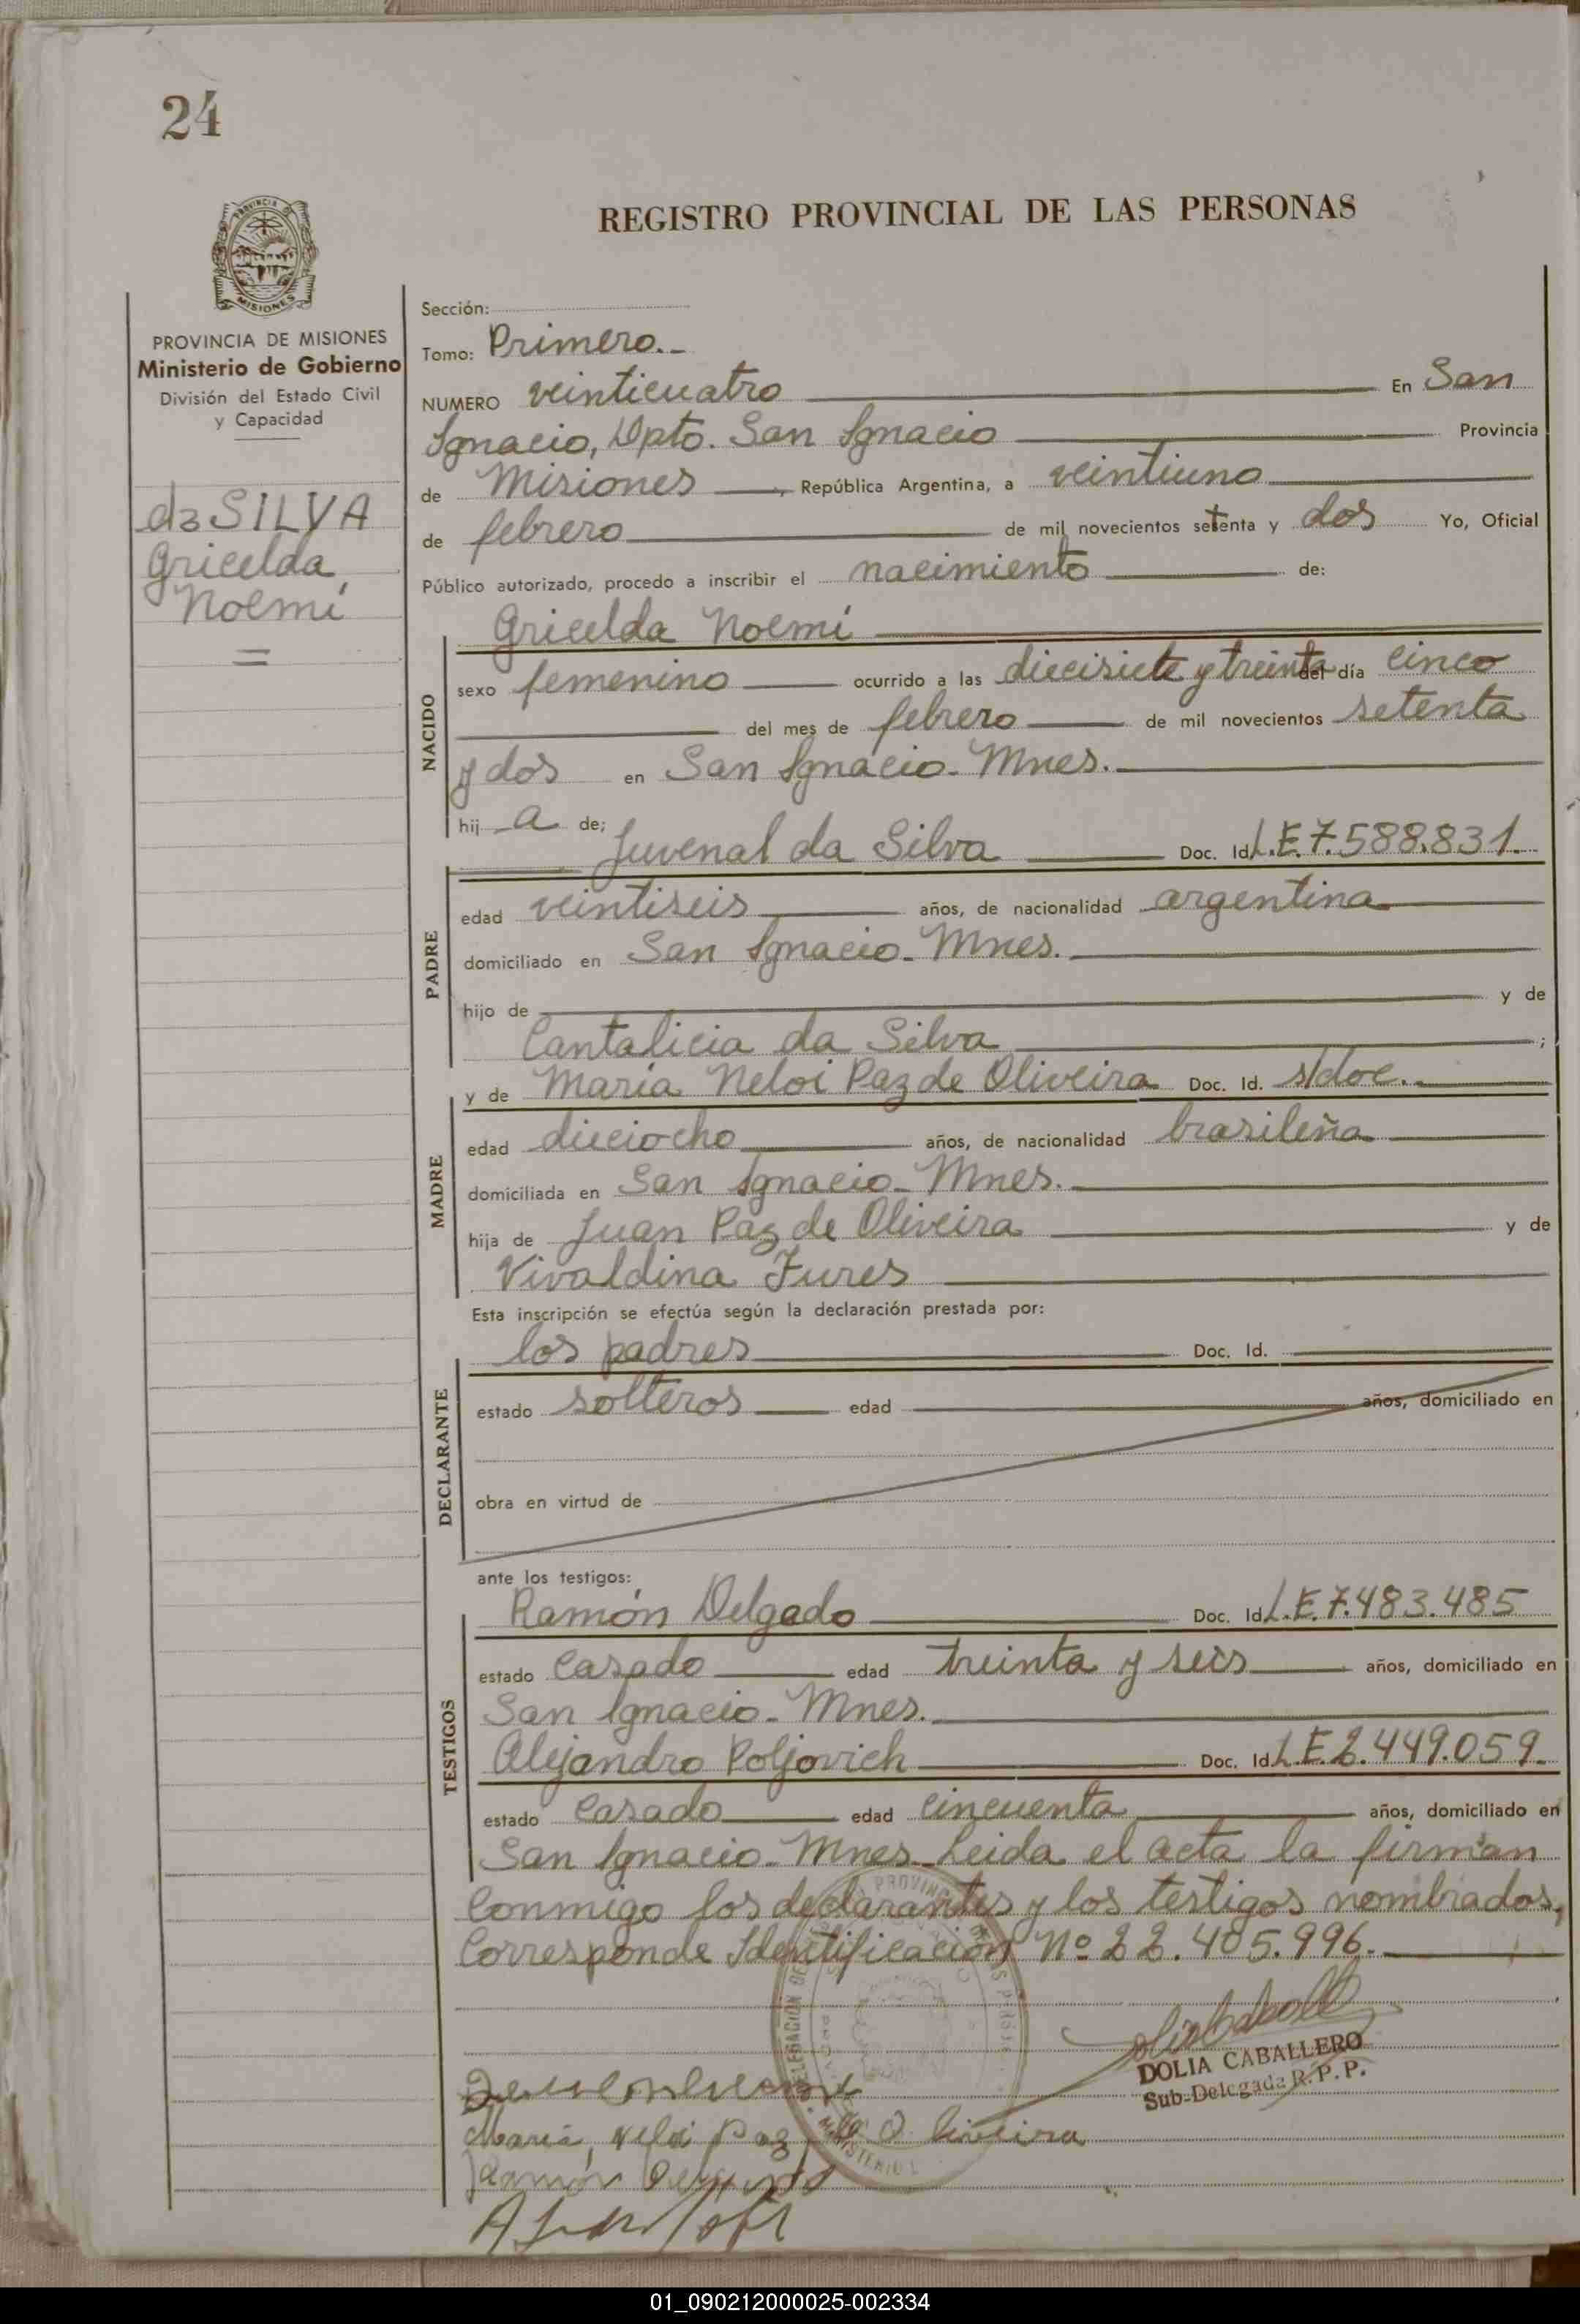 24
REGISTRO PROVINCIAL DE LAS PERSONAS
PROVINCIA
MISIONES
PROVINCIA DE MISIONES
Ministerio de Gobierno
División del Estado Civil
y Capacidad
da SILVA
Gricelda
Noemí
=
Sección:
Tomo: Primero.-
NUMERO veinticuatro En San
Ignacio, Dpto. San Ignacio Provincia
de Misiones, República Argentina, a veintiuno
de febrero de mil novecientos setenta y dos Yo, Oficial
Público autorizado, procedo a inscribir el nacimiento de:
Gricelda Noemí
NACIDO
sexo femenino ocurrido a las diecisiete y treinta del día cinco
del mes de febrero de mil novecientos setenta
y dos en San Ignacio-Mnes.
hij a de;
Juvenal da Silva Doc. Id. L.E.7.588.831.
PADRE
edad veintiseis años, de nacionalidad argentina
domiciliado en San Ignacio-Mnes.
hijo de y de
Cantalicia da Silva ;
y de María Neloi Paz de Oliveira Doc. Id. s/doc.
MADRE
edad dieciocho años, de nacionalidad brasileña
domiciliada en San Ignacio-Mnes.
hija de Juan Paz de Oliveira y de
Vivaldina Fures
Esta inscripción se efectúa según la declaración prestada por:
los padres Doc. Id.
DECLARANTE
estado solteros edad años, domiciliado en
obra en virtud de
ante los testigos:
Ramón Delgado Doc. Id. L.E.7.483.485
TESTIGOS
estado Casado edad treinta y seis años, domiciliado en
San Ignacio-Mnes.
Alejandro Poljovich Doc. Id. L.E.2.449.059.
estado Casado edad cincuenta años, domiciliado en
San Ignacio-Mnes. Leida el acta la firman
Conmigo los declarantes y los testigos nombrados,
Corresponde Identificación Nº 22.405.996.
DOLIA CABALLERO
Sub-Delegada R. P. P.
María Neloi Paz de Oliveira
Ramón Delgado
01_090212000025-002334